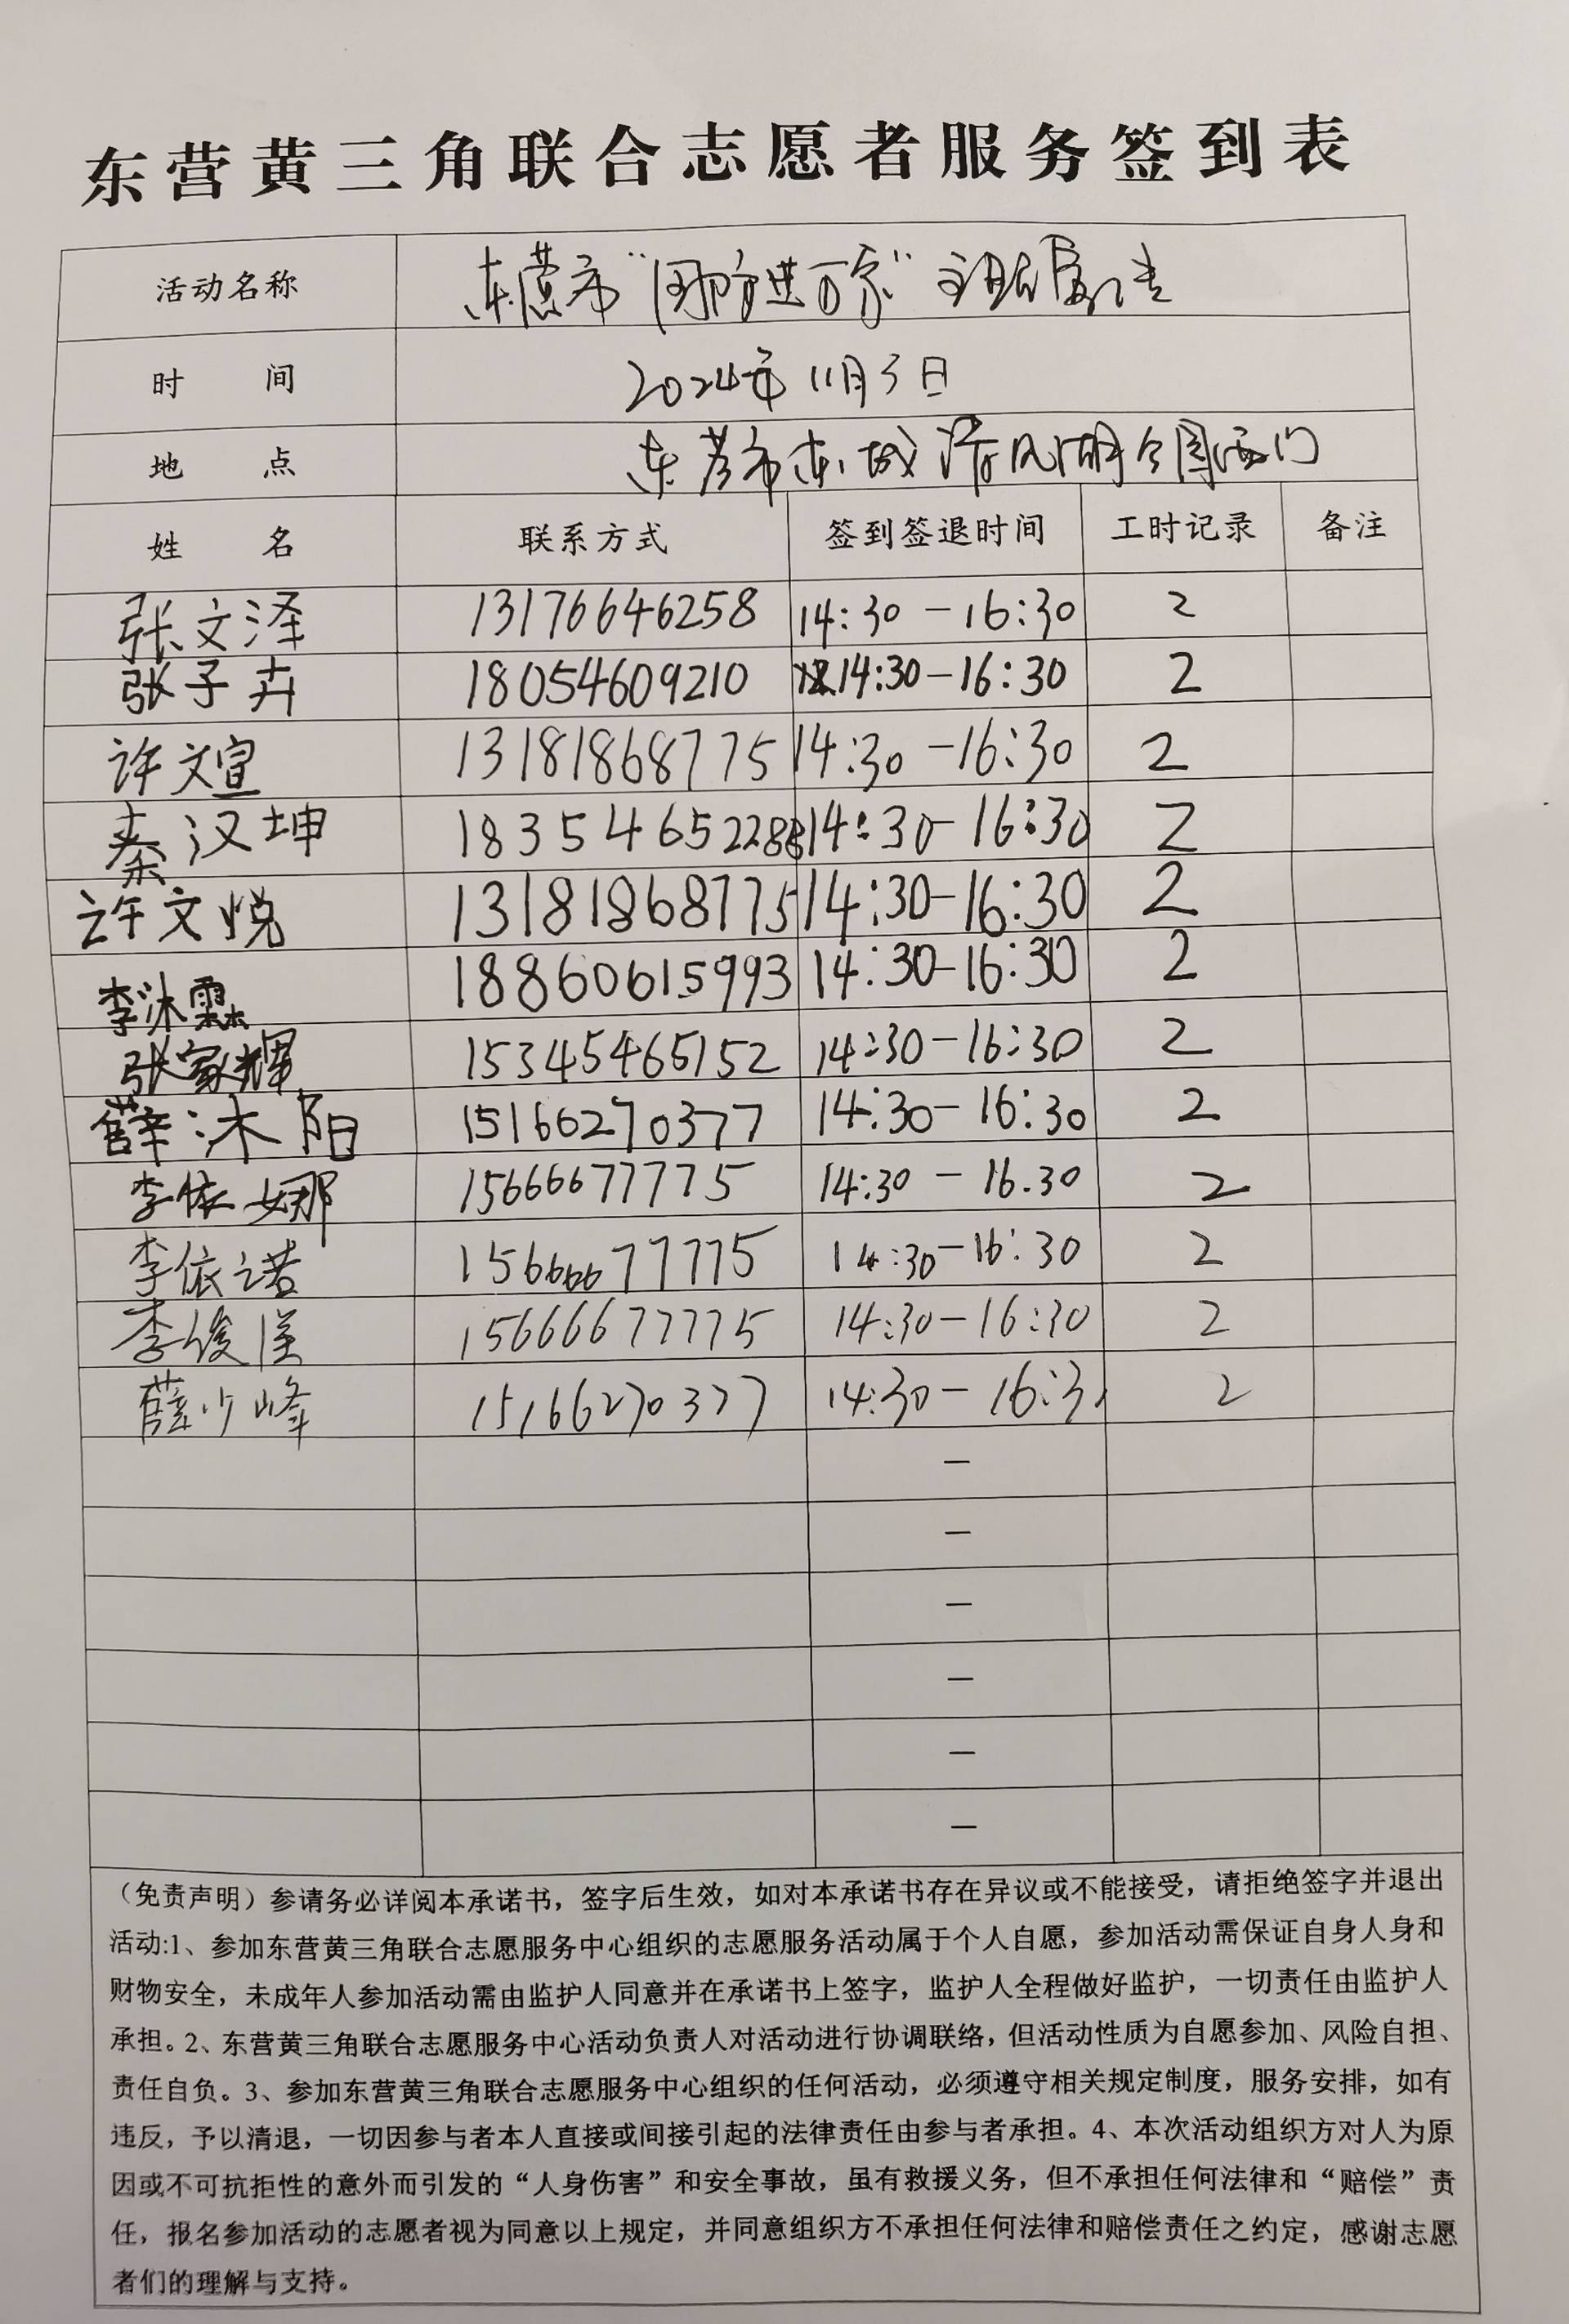 东营黄三角联合志愿者服务签到表
活动名称 东营市“国防进万家”主题宣传
时 间 2024年11月3日
地 点 东营市东城清风湖公园西门
姓 名 联系方式 签到签退时间 工时记录 备注
张文泽 13176646258 14:30-16:30 2
张子卉 18054609210 14:30-16:30 2
许文宣 13181868775 14:30-16:30 2
秦汉坤 18354652288 14:30-16:30 2
许文悦 13181868775 14:30-16:30 2
李沐霖 18860615993 14:30-16:30 2
张家辉 15345465152 14:30-16:30 2
薛沐阳 15166270377 14:30-16:30 2
李依娜 15666677775 14:30-16.30 2
李依诺 15666677775 14:30-16:30 2
李俊 15666677775 14:30-16:30 2
薛少峰 15166270377 14:30-16:3 2
—
—
—
—
—
—
（免责声明）参请务必详阅本承诺书，签字后生效，如对本承诺书存在异议或不能接受，请拒绝签字并退出
活动:1、参加东营黄三角联合志愿服务中心组织的志愿服务活动属于个人自愿，参加活动需保证自身人身和
财物安全，未成年人参加活动需由监护人同意并在承诺书上签字，监护人全程做好监护，一切责任由监护人
承担。2、东营黄三角联合志愿服务中心活动负责人对活动进行协调联络，但活动性质为自愿参加、风险自担、
责任自负。3、参加东营黄三角联合志愿服务中心组织的任何活动，必须遵守相关规定制度，服务安排，如有
违反，予以清退，一切因参与者本人直接或间接引起的法律责任由参与者承担。4、本次活动组织方对人为原
因或不可抗拒性的意外而引发的“人身伤害”和安全事故，虽有救援义务，但不承担任何法律和“赔偿”责
任，报名参加活动的志愿者视为同意以上规定，并同意组织方不承担任何法律和赔偿责任之约定，感谢志愿
者们的理解与支持。